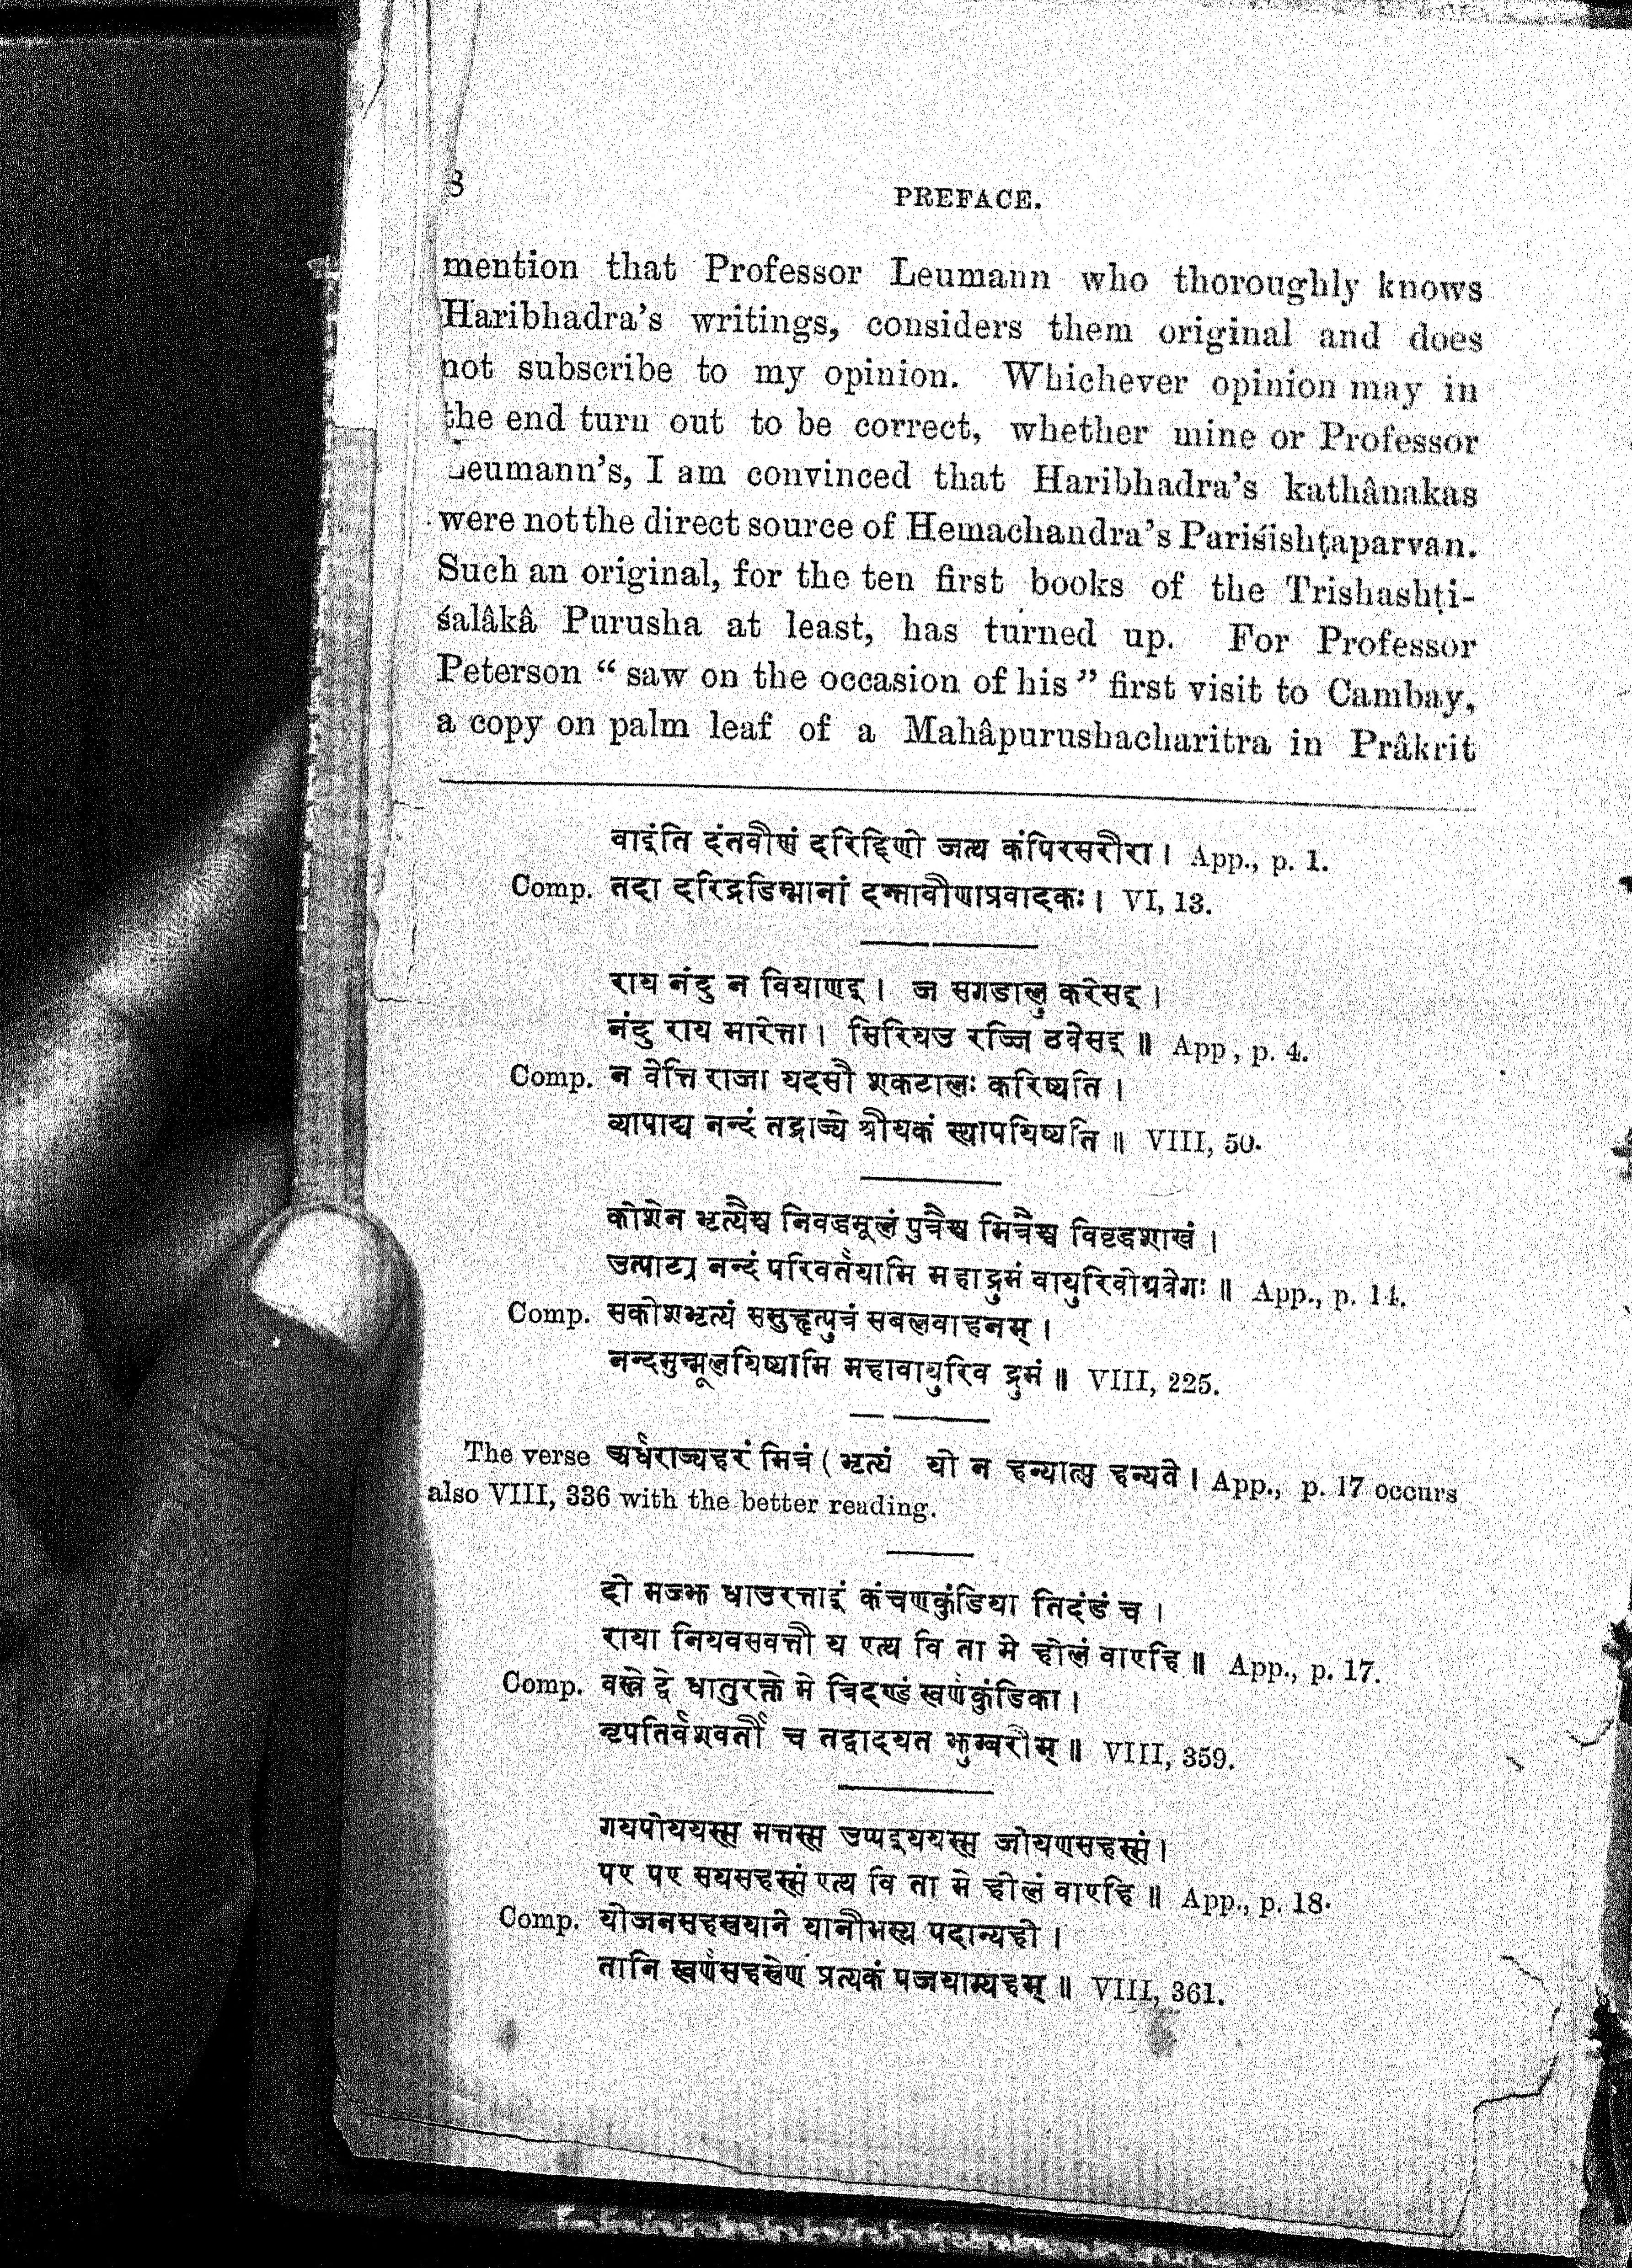 8
PREFACE.
mention that Professor Leumann who thoroughly knows
Haribhadra's writings, considers them original and does
not subscribe to my opinion. Whichever opinion may in
the end turn out to be correct, whether mine or Professor
Leumann's, I am convinced that Haribhadra's kathânakas
were not the direct source of Hemachandra's Pariśishṭaparvan.
Such an original, for the ten first books of the Trishashṭi-
śalâkâ Purusha at least, has turned up. For Professor
Peterson “ saw on the occasion of his ” first visit to Cambay,
a copy on palm leaf of a Mahâpurushacharitra in Prâkrit
वाइंति दंतवीणं दरिद्दिणो जत्थ कंपिरसरीरा। App., p. 1.
Comp. तदा दरिद्रडिम्भानां दन्तवीणाप्रवादकः। VI, 13.
राय नंदु न वियाणइ। जं सगडालु करेसइ।
नंदु राय मारेत्ता। सिरियउ रज्जि ठवेसइ॥ App, p. 4.
Comp. न वेत्ति राजा यदसौ शकटालः करिष्यति।
व्यापाद्य नन्दं तद्राज्ये श्रीयकं स्थापयिष्यति॥ VIII, 50.
कोशेन भृत्यैश्च निबद्धमूलं पुत्रैश्च मित्रैश्च विवृद्धशाखं।
उत्पाट्य नन्दं परिवर्तयामि महाद्रुमं वायुरिवोग्रवेगः॥ App., p. 14.
Comp. सकोशभृत्यं ससुहृत्पुत्रं सबलवाहनम्।
नन्दमुन्मूलयिष्यामि महावायुरिव द्रुमं॥ VIII, 225.
The verse अर्धराज्यहरं मित्रं (भृत्यं यो न हन्यात्स हन्यते। App., p. 17 occurs
also VIII, 336 with the better reading.
दो मज्झ धाउरत्ताइं कंचणकुंडिया तिदंडं च।
राया नियवसवत्ती य एत्थ वि ता मे होलं वाएहि॥ App., p. 17.
Comp. वस्त्रे द्वे धातुरक्ते मे त्रिदण्डं स्वर्णकुंडिका।
नृपतिर्वशवर्ती च तद्वादयत झुम्बरीम्॥ VIII, 359.
गयपोययस्स मत्तस्स उप्पइययस्स जोयणसहस्सं।
पए पए सयसहस्सं एत्थ वि ता मे होलं वाएहि॥ App., p. 18.
Comp. योजनसहस्रयाने यानीभस्य पदान्यहो।
तानि स्वर्णसहस्रेण प्रत्येकं पूजयाम्यहम्॥ VIII, 361.